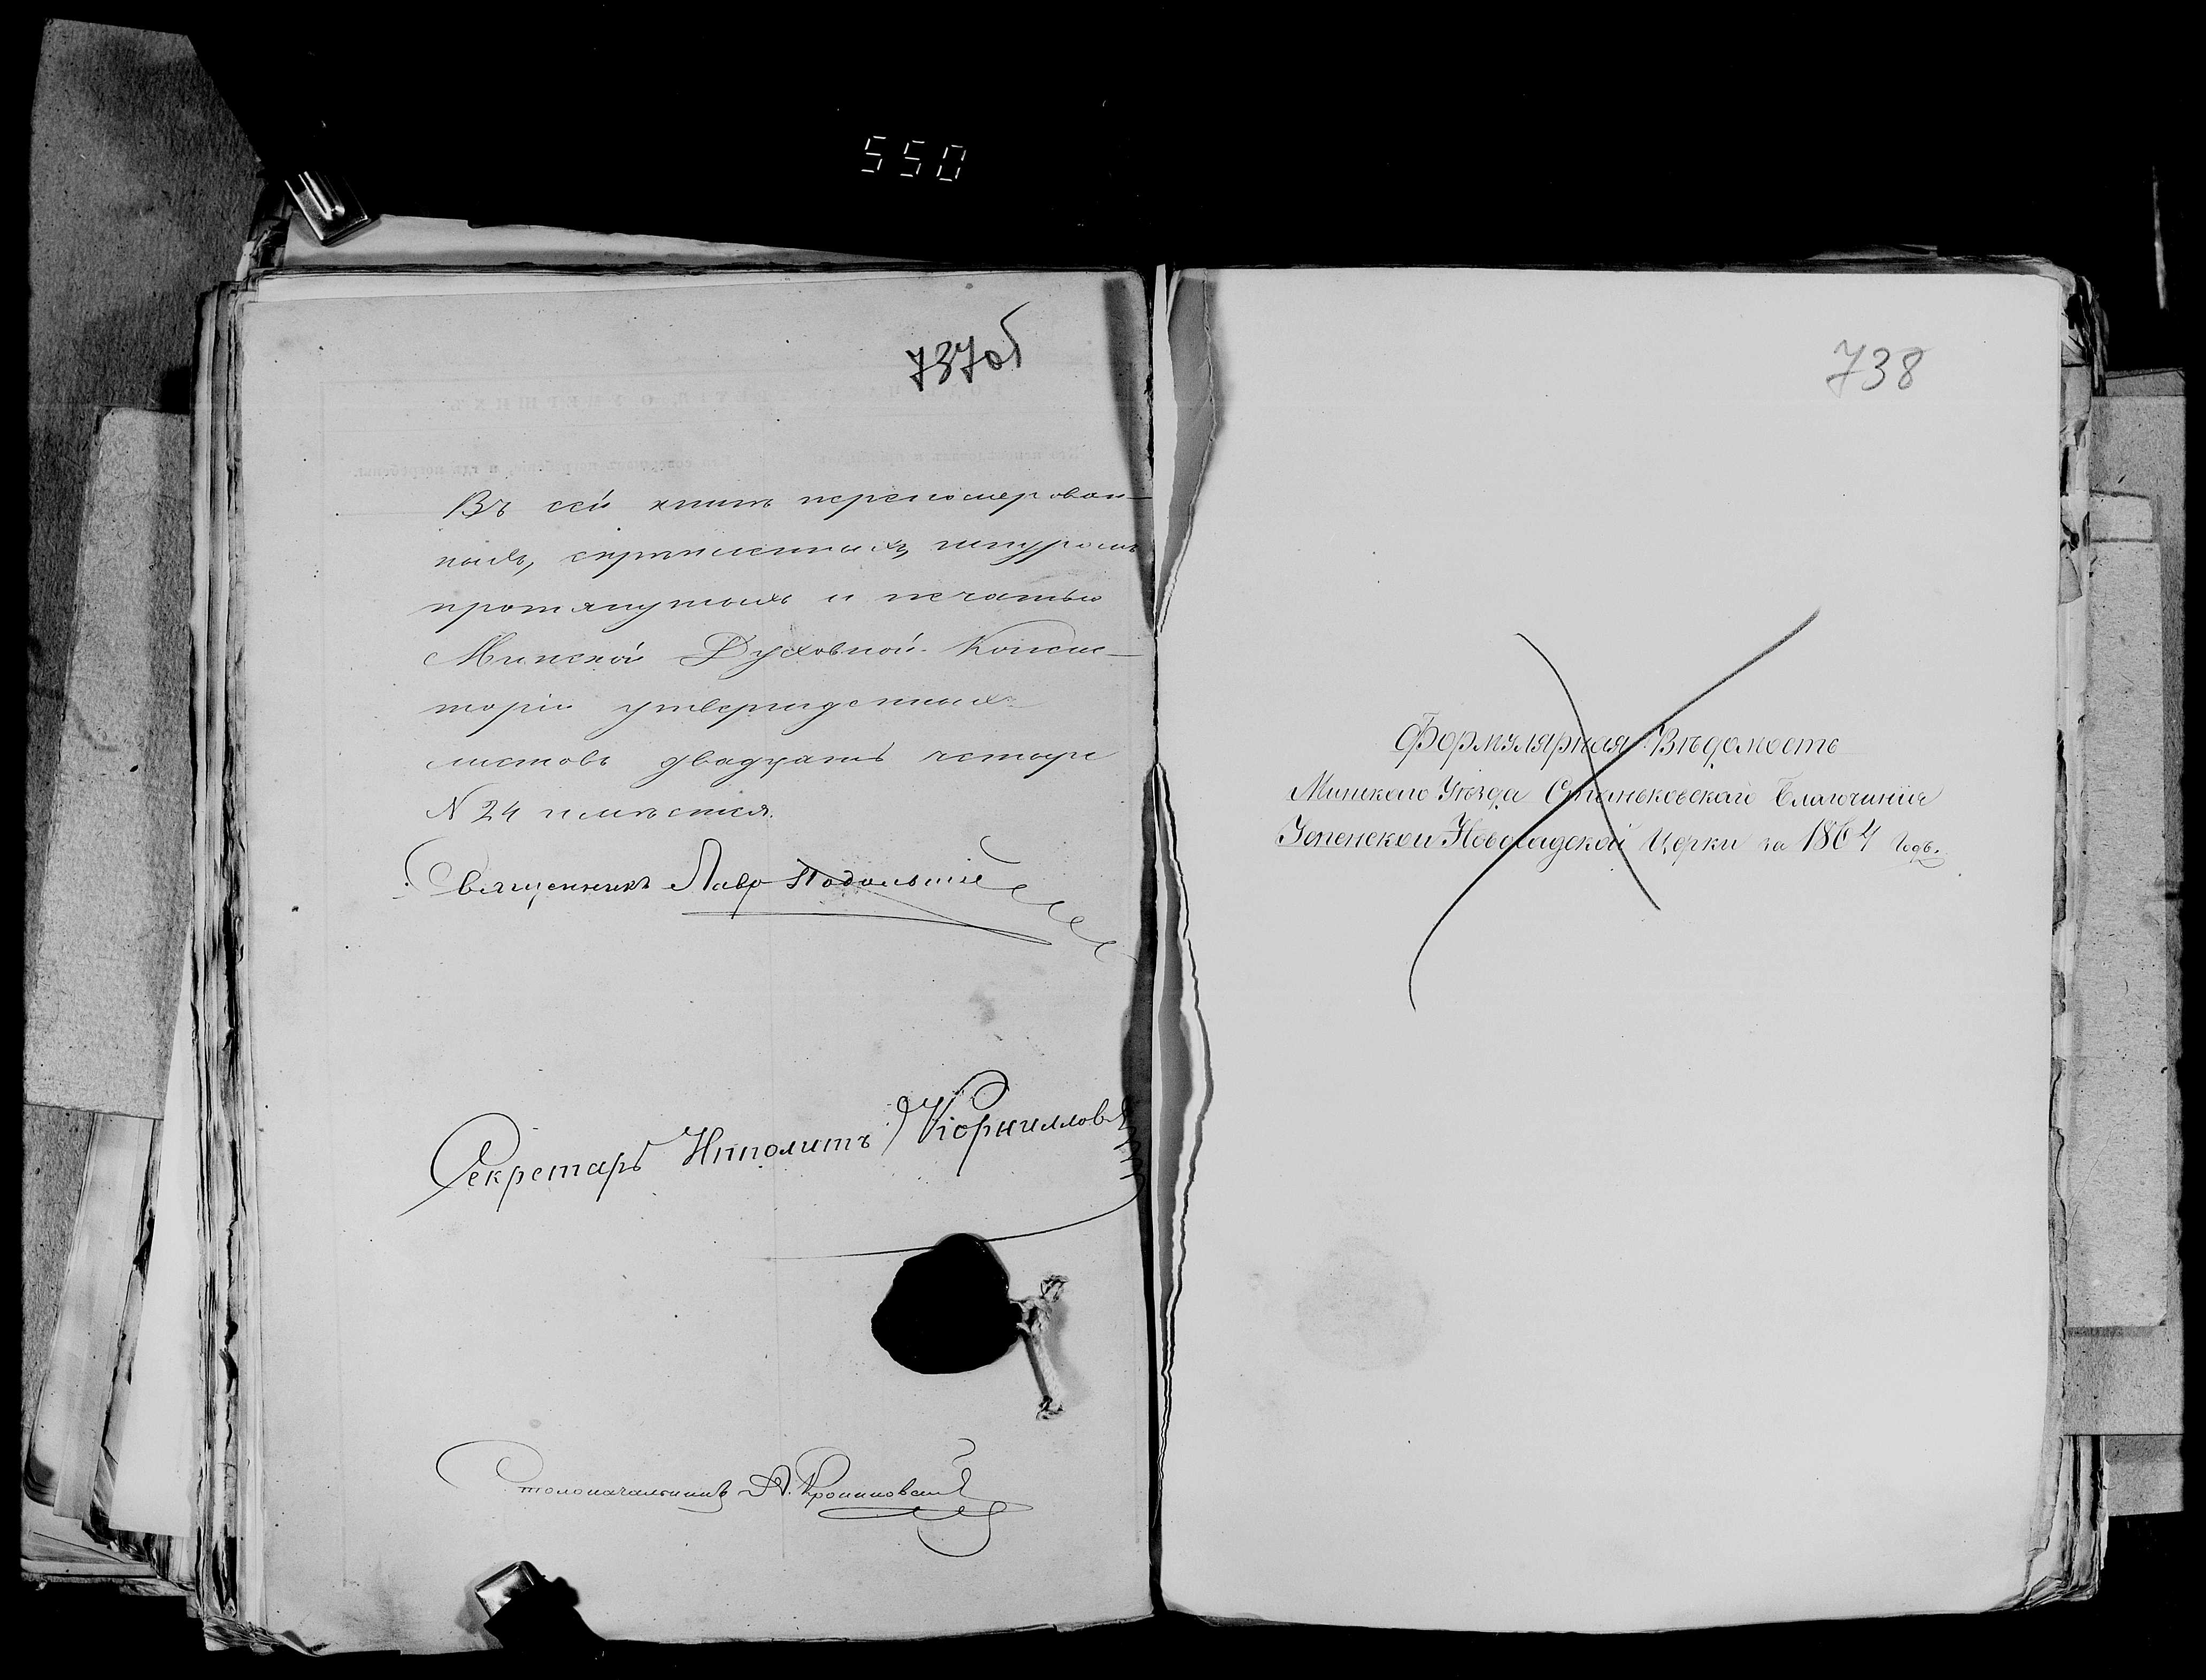 550
737об
Въ сей книгѣ перенумерован-
ныхъ, скрѣпленныхъ, шнуромъ
протянутыхъ и печатью
Минской Духовной Конси-
торіи утвержденныхъ
листовъ двадцать четыре
N 24 имѣется.
Священникъ Лавр Подольскій
Секретарь Ипполитъ Корниловъ
Столоначальникъ А.
738
Формулярная Вѣдомость
Минскаго Уѣзда Станьковскаго Благочинія
Успенской Новосадской Церкви за 1864 годъ.